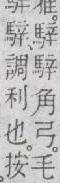 騂騂角弓。毛
騂調利也。按